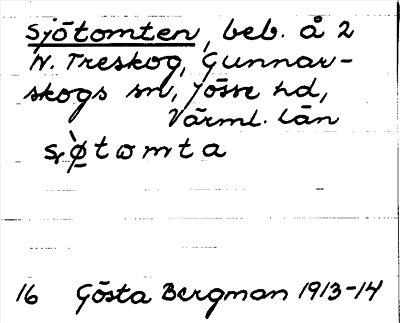 Sjötomten, beb. å 2
N. Treskog, Gunnar-
skogs sn, Jösse hd,
Värml. län
sø̀tωmta
16 Gösta Bergman 1913-14